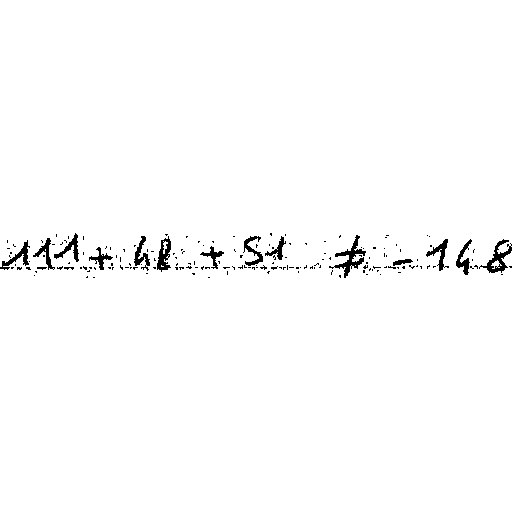 111 + 48 + 51 ≠ - 148